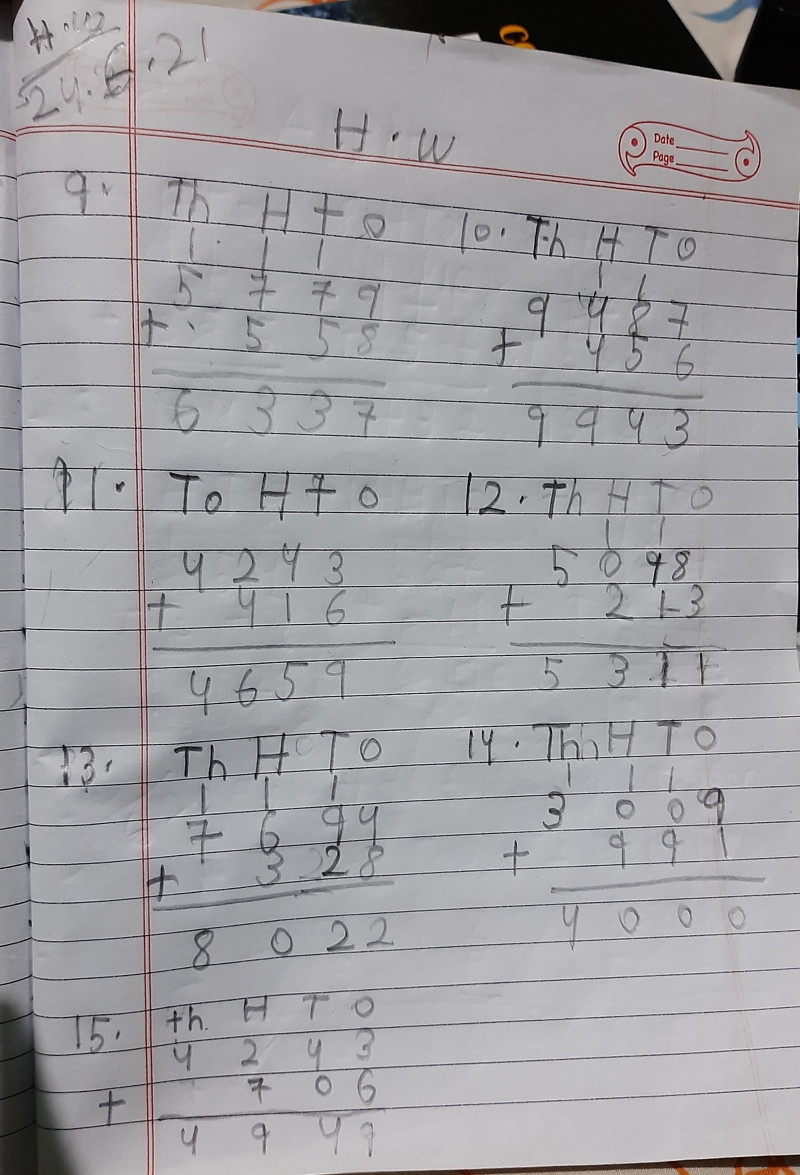 H.W
24.6.21
H.W
Date
Page
9. Th H T O
1 1 1
5 7 7 9
+ 5 5 8
6 3 3 7
10. Th H T O
1 1
9 4 8 7
+ 4 5 6
9 9 4 3
11. To H T O
4 2 4 3
+ 4 1 6
4 6 5 9
12. Th H T O
1 1
5 0 9 8
+ 2 1 3
5 3 1 1
13. Th H T O
1 1 1
7 6 9 4
+ 3 2 8
8 0 2 2
14. Th H T O
1 1 1
3 0 0 9
+ 9 9 1
4 0 0 0
15. th. H T O
4 2 4 3
+ 7 0 6
4 9 4 9